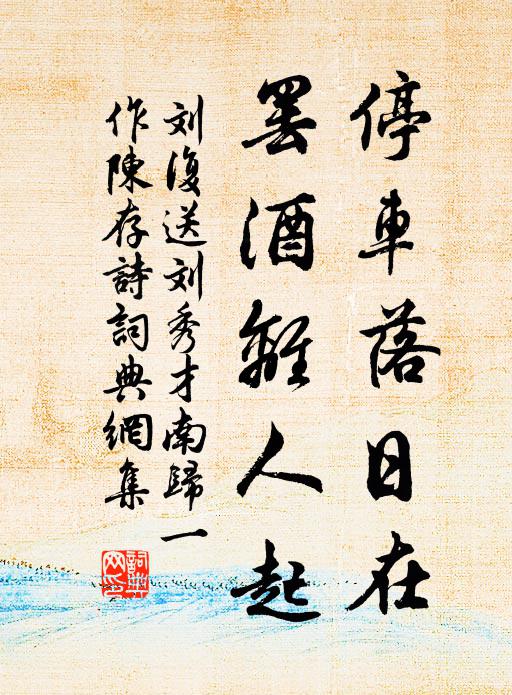 停車落日在
罢酒離人起
刘復送刘秀才南歸一
作陳存詩詞典網集